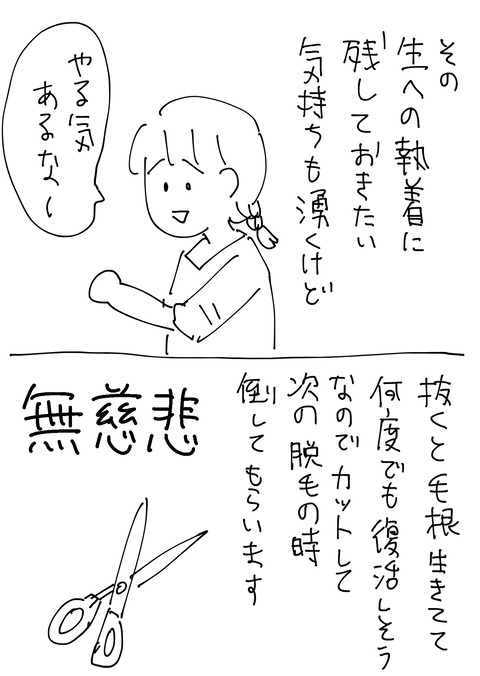 その
生への執着に
残しておきたい
気持ちも湧くけど
やる気
あるな〜
抜くと毛根生きてて
何度でも復活しそう
なのでカットして
次の脱毛の時
倒してもらいます
無慈悲